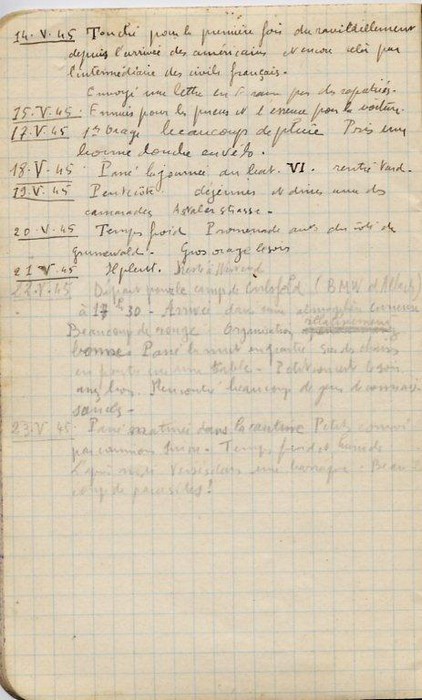 14.V.45 Touché pour la première fois du ravitaillement
depuis l'arrivée des américains et encore cela par
l'intermédiaire des civils français.
Envoyé une lettre en France par des rapatriés.
15.V.45. Ennuis pour les pneus et l'essence pour la voiture.
17.V.45 1er orage beaucoup de pluie Pris une
bonne douche en vélo.
18.V.45 Passé la journée au bat. VI. rentré tard.
19.V.45 Pentecôte déjeuner et dîner avec des
camarades strasse.
20.V.45 Temps froid Promenade du côté de
Grunewald. Gros orage le soir
21.V.45 Il pleut.
22.V.45 Départ pour le camp de (BMW d'Allach)
à 17h30 - Arrivée dans une atmosphère curieuse
Beaucoup de rouge. Organisation
bonne. Passé la nuit sur des chaises
le soir
assez bon. Rencontré beaucoup de gens de connais-
sances.
23.V.45. Passé matinée dans la cantine Petit
par Suisse. Temps froid et humide
L'après midi une baraque. Beau-
coup de parasites!